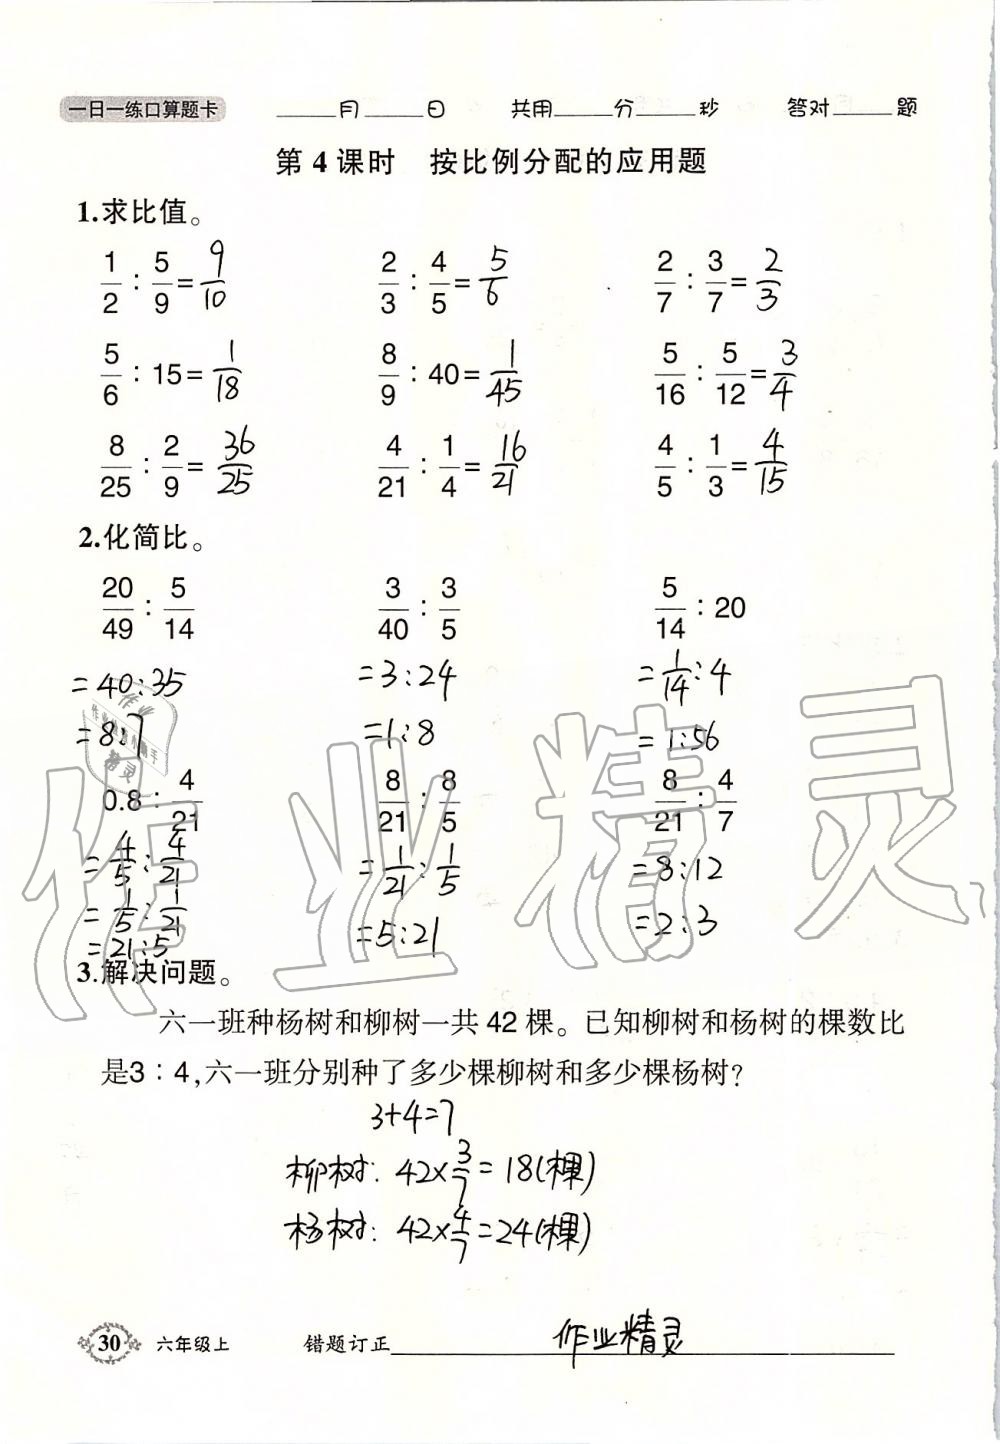 一日一练口算题卡 ____月____日 共用____分____秒 答对____题
第 4 课时 按比例分配的应用题
1.求比值。
1/2 : 5/9 = 9/10 2/3 : 4/5 = 5/6 2/7 : 3/7 = 2/3
5/6 : 15 = 1/18 8/9 : 40 = 1/45 5/16 : 5/12 = 3/4
8/25 : 2/9 = 36/25 4/21 : 1/4 = 16/21 4/5 : 1/3 = 4/15
2.化简比。
20/49 : 5/14 3/40 : 3/5 5/14 : 20
= 40:35 = 3:24 = 1/14 : 4
= 8:7 = 1:8 = 1:56
0.8 : 4/21 8/21 : 8/5 8/21 : 4/7
= 4/5 : 4/21 = 1/21 : 1/5 = 8:12
= 1/5 : 1/21 = 5:21 = 2:3
= 21:5
3.解决问题。
六一班种杨树和柳树一共 42 棵。已知柳树和杨树的棵数比
是3:4,六一班分别种了多少棵柳树和多少棵杨树?
3+4=7
柳树: 42×3/7 = 18(棵)
杨树: 42×4/7 = 24(棵)
30 六年级上 错题订正 作业精灵
作业精灵